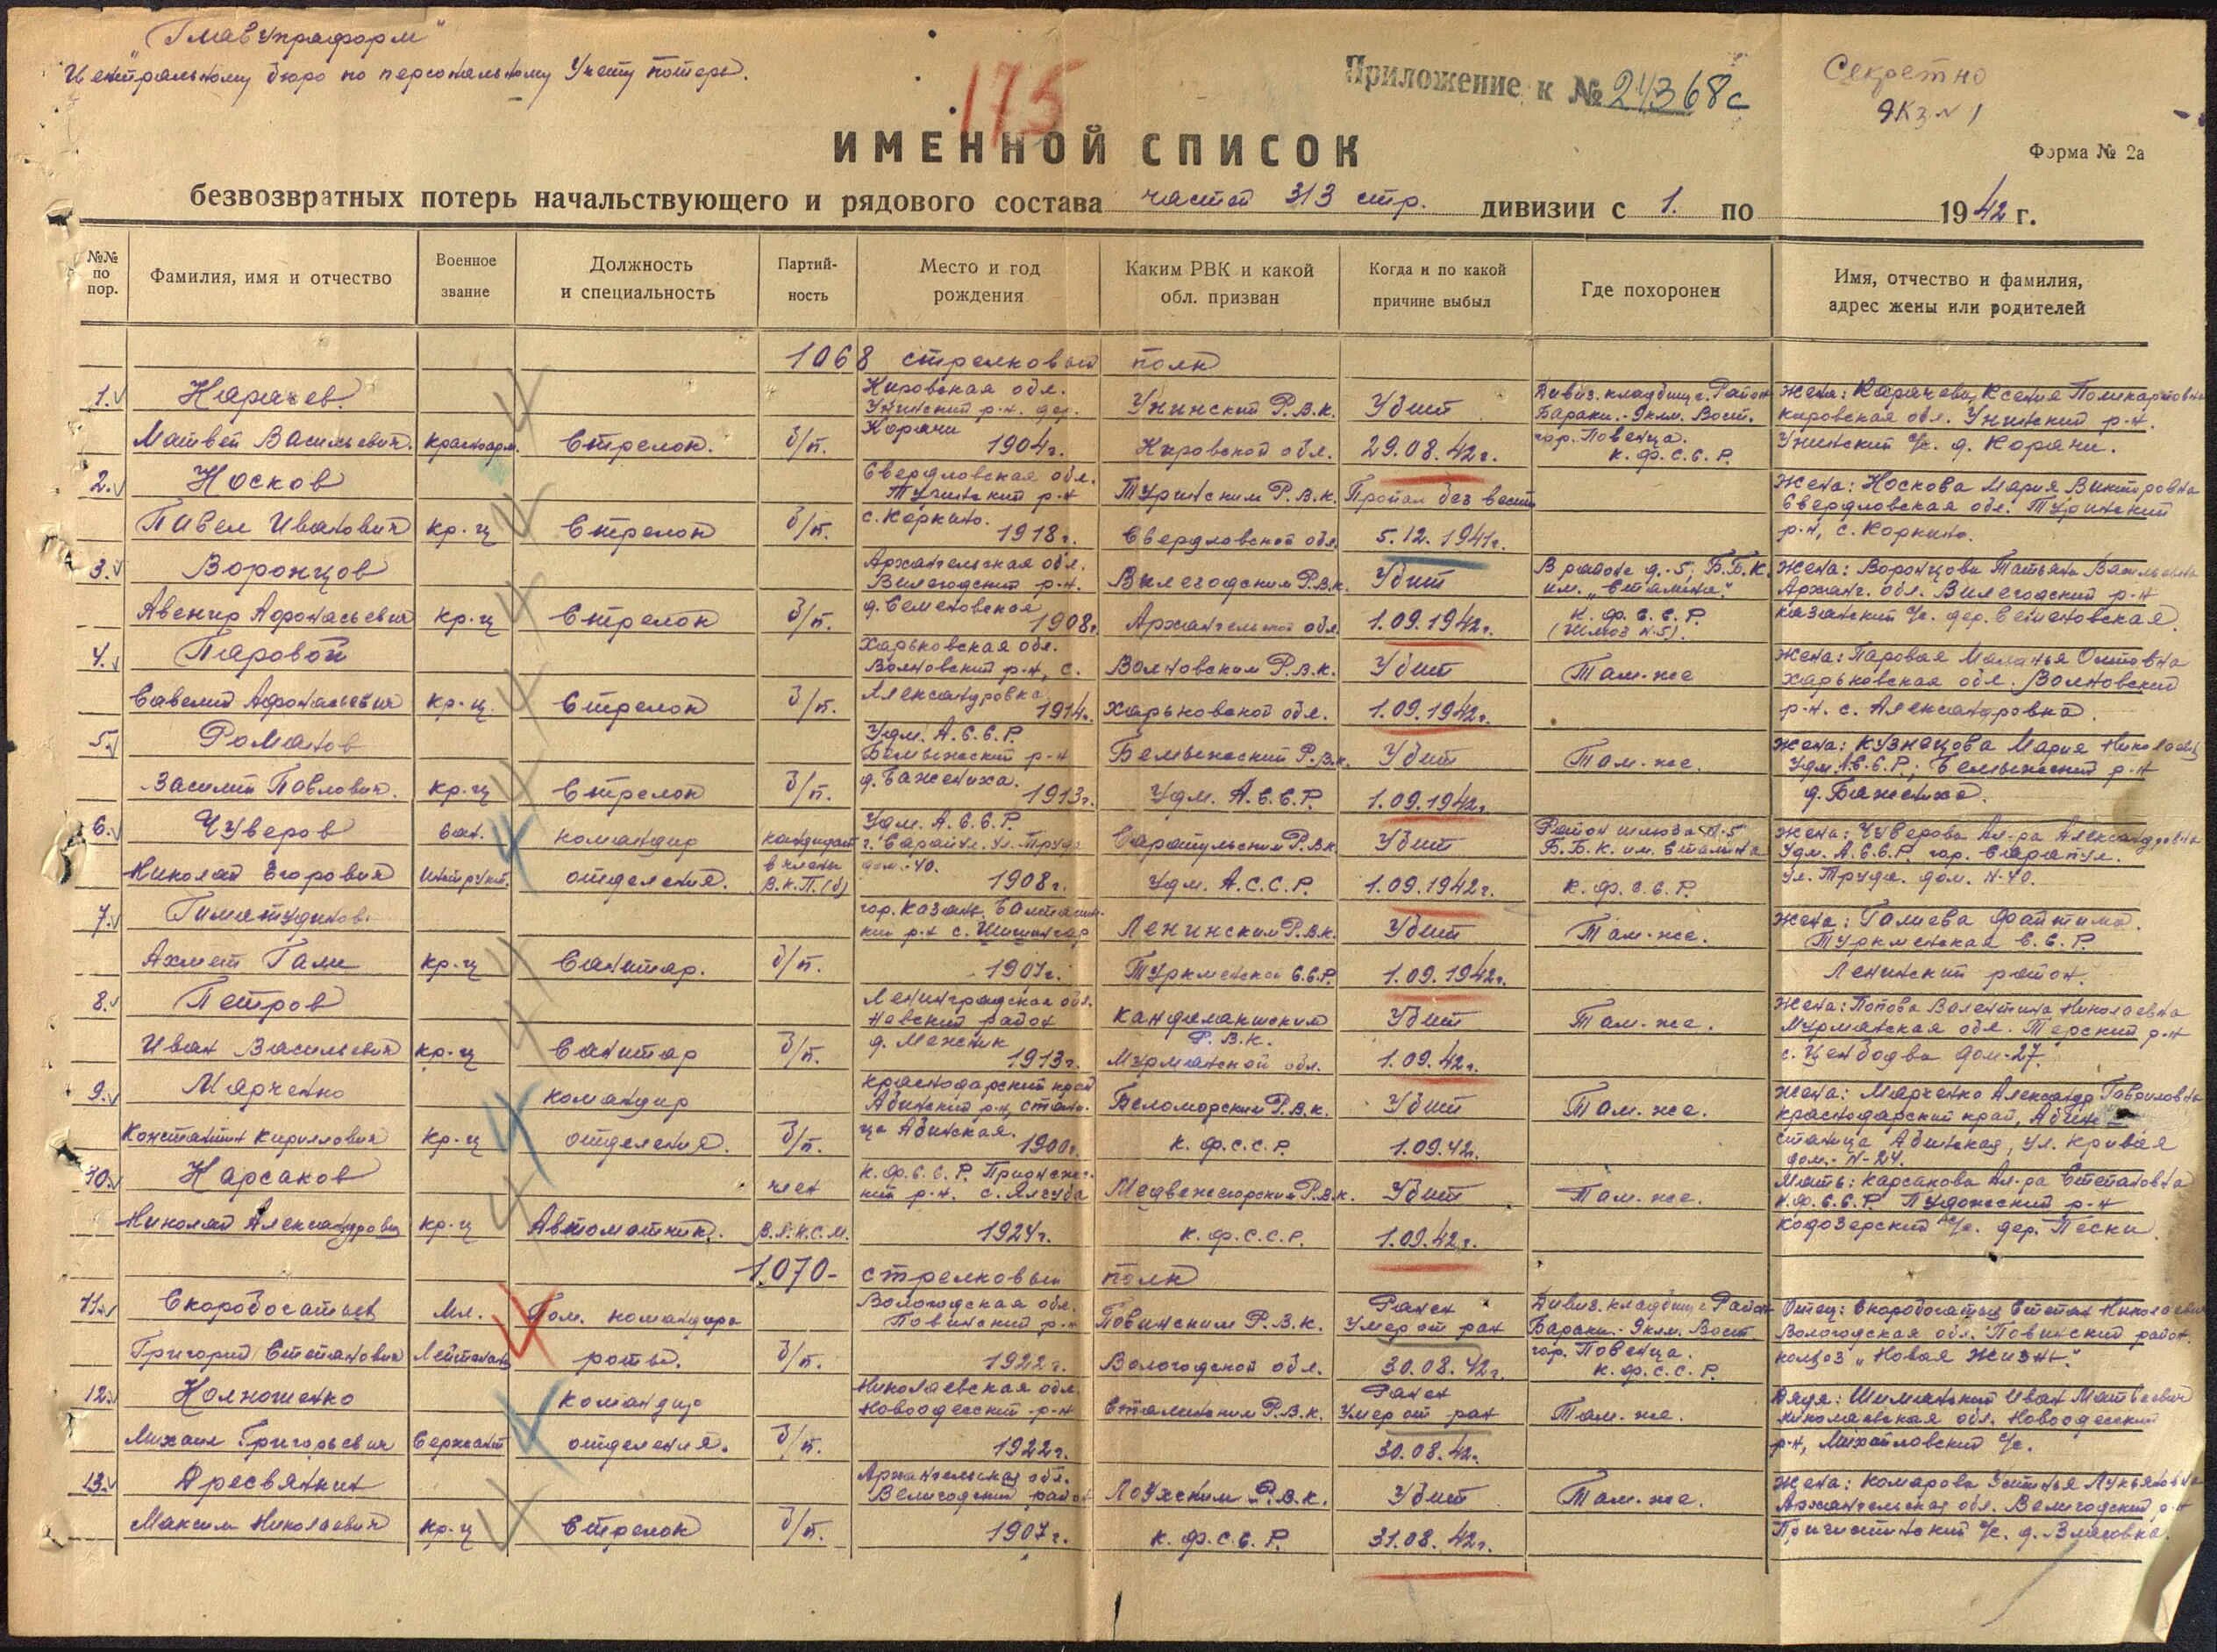 "Главупраформ"
Центральному бюро по персональному Учету потерь.
175
Приложение к № 21368с
Секретно
Экз № 1
Форма № 2а
ИМЕННОЙ СПИСОК
безвозвратных потерь начальствующего и рядового состава частей 313 стр. дивизии с 1. по 1942 г.
№№ по пор.
Фамилия, имя и отчество
Военное звание
Должность и специальность
Партий-ность
Место и год рождения
Каким РВК и какой обл. призван
Когда и по какой причине выбыл
Где похоронен
Имя, отчество и фамилия, адрес жены или родителей
1068 стрелковый полк
1. Карачев Матвей Васильевич. Красноарм. Стрелок. б/п. Кировская обл. Унинский р-н. дер. Корачи 1904г. Унинский Р.В.К. Кировской обл. Убит 29.08.42г. Дивиз. кладбище Район Бараки. 9км. Вост. гор. Повенца. К.Ф.С.С.Р. Жена: Карачева Ксения Поликарповна Кировская обл. Унинский р-н. Унинский с/с. д. Корачи.
2. Носков Павел Иванович Кр-ц Стрелок б/п. Свердловская обл. Туринский р-н с. Коркино. 1918г. Туринским Р.В.К. Свердловской обл. Пропал без вести 5.12.1941г. Жена: Носкова Мария Викторовна Свердловская обл. Туринский р-н, с. Коркино.
3. Воронцов Авенир Афонасьевич Кр-ц Стрелок б/п. Архангельская обл. Вилегодский р-н. д. Семеновская 1908г. Вилегодским Р.В.К. Архангельской обл. Убит 1.09.1942г. В районе д.-5, Б.Б.К. им. "Сталина". К.Ф.С.С.Р. (Шлюз N5). Жена: Воронцова Татьяна Васильевна Арханг. обл. Вилегодский р-н Казанский с/с. дер. Семеновская.
4. Паровой Савелий Афонасьевич Кр-ц. Стрелок б/п. Харьковская обл. Волновский р-н, с. Александровка 1914г. Волновским Р.В.К. Харьковской обл. Убит 1.09.1942г. Там-же Жена: Паровая Маланья Харьковская обл. Волновский р-н. с. Александровка.
5. Романов Василий Павлович. Кр-ц Стрелок б/п. Удм. А.С.С.Р. Бемыжеский р-н д. Бажениха. 1913г. Бемыжеский Р.В.К. Удм. А.С.С.Р. Убит 1.09.1942г. Там-же. Жена: Кузнецова Мария Николаевн Удм. А.С.С.Р., Бемыжеский р-н д. Баженихо.
6. Чуверов Николай Егорович Сан. Инструкт. командир отделения. кандидат в члены В.К.П.(б) Удм. А.С.С.Р. г. Сарапул. ул. Труда дом.-40. 1908г. Сарапульский Р.В.К. Удм. А.С.С.Р. Убит 1.09.1942г. Район шлюза N-5 Б.Б.К. им. Сталина К.Ф.С.С.Р. Жена: Чуверова Ал-ра Александровна Удм. А.С.С.Р. гор. Сарапул. Ул. Труда. дом. N-40.
7. Гиматудинов Ахмет Гали Кр-ц Санитар. б/п. гор. Казань. с. 1907г. Ленинским Р.В.К. Туркменской С.С.Р. Убит 1.09.1942г. Там-же. Жена: Галиева Файтима. Туркменская С.С.Р. Ленинский район.
8. Петров Иван Васильевич Кр-ц Санитар б/п. Ленинградская обл. Невский район д. Межник 1913г. Кандалакшским Р.В.К. Мурманской обл. Убит 1.09.42г. Там-же. Жена: Попова Валентина Николаевна Мурманская обл. Терский р-н дом-27.
9. Марченко Константин Кириллович Кр-ц командир отделения. б/п. Краснодарский край Абинский р-н стани-ца Абинская. 1900г. Беломорским Р.В.К. К.Ф.С.С.Р. Убит 1.09.42г. Там-же. Жена: Марченко Александр Гавриловна Краснодарский край, Абин станица Абинская, ул. Кривая дом.-N-24.
10. Карсаков Николай Александрович Кр-ц Автоматчик. член В.Л.К.С.М. К.Ф.С.С.Р. Прионежс-кий р-н. с. 1924г. Медвежегорский Р.В.К. К.Ф.С.С.Р. Убит 1.09.42г. Там-же. Мать: Карсакова Ал-ра Степановна К.Ф.С.С.Р. Пудожский р-н Кодозерский с/с. дер. Пески.
1070- стрелковый полк
11. Скоробогатый Григорий Степанович Мл. Лейтенант Пом. командира роты. б/п. Вологодская обл. Повинский р-н 1922г. Повинским Р.В.К. Вологодской обл. Ранен Умер от ран 30.08.42г. Дивиз. кладбище Район Бараки. 9км. Вост. гор. Повенца. К.Ф.С.С.Р. Отец: Скоробогатый Степан Николаевич Вологодская обл. Повинский район. колхоз "Новая Жизнь".
12. Колношенко Михаил Григорьевич Сержант командир отделения. б/п. Николаевская обл. Новоодесский р-н 1922г. Сталинским Р.В.К. Ранен Умер от ран 30.08.42. Там-же. Дядя: Иван Матвеевич Николаевская обл. Новоодесский р-н, Михайловский с/с.
13. Дресвянкин Максим Николаевич Кр-ц Стрелок б/п. Архангельская обл. Велигодский район 1907г. Лоухским Р.В.К. К.Ф.С.С.Р. Убит 31.08.42г. Там-же. Жена: Комарова Устинья Лукьяновна Архангельская обл. Велигодский р-н с/с. д.